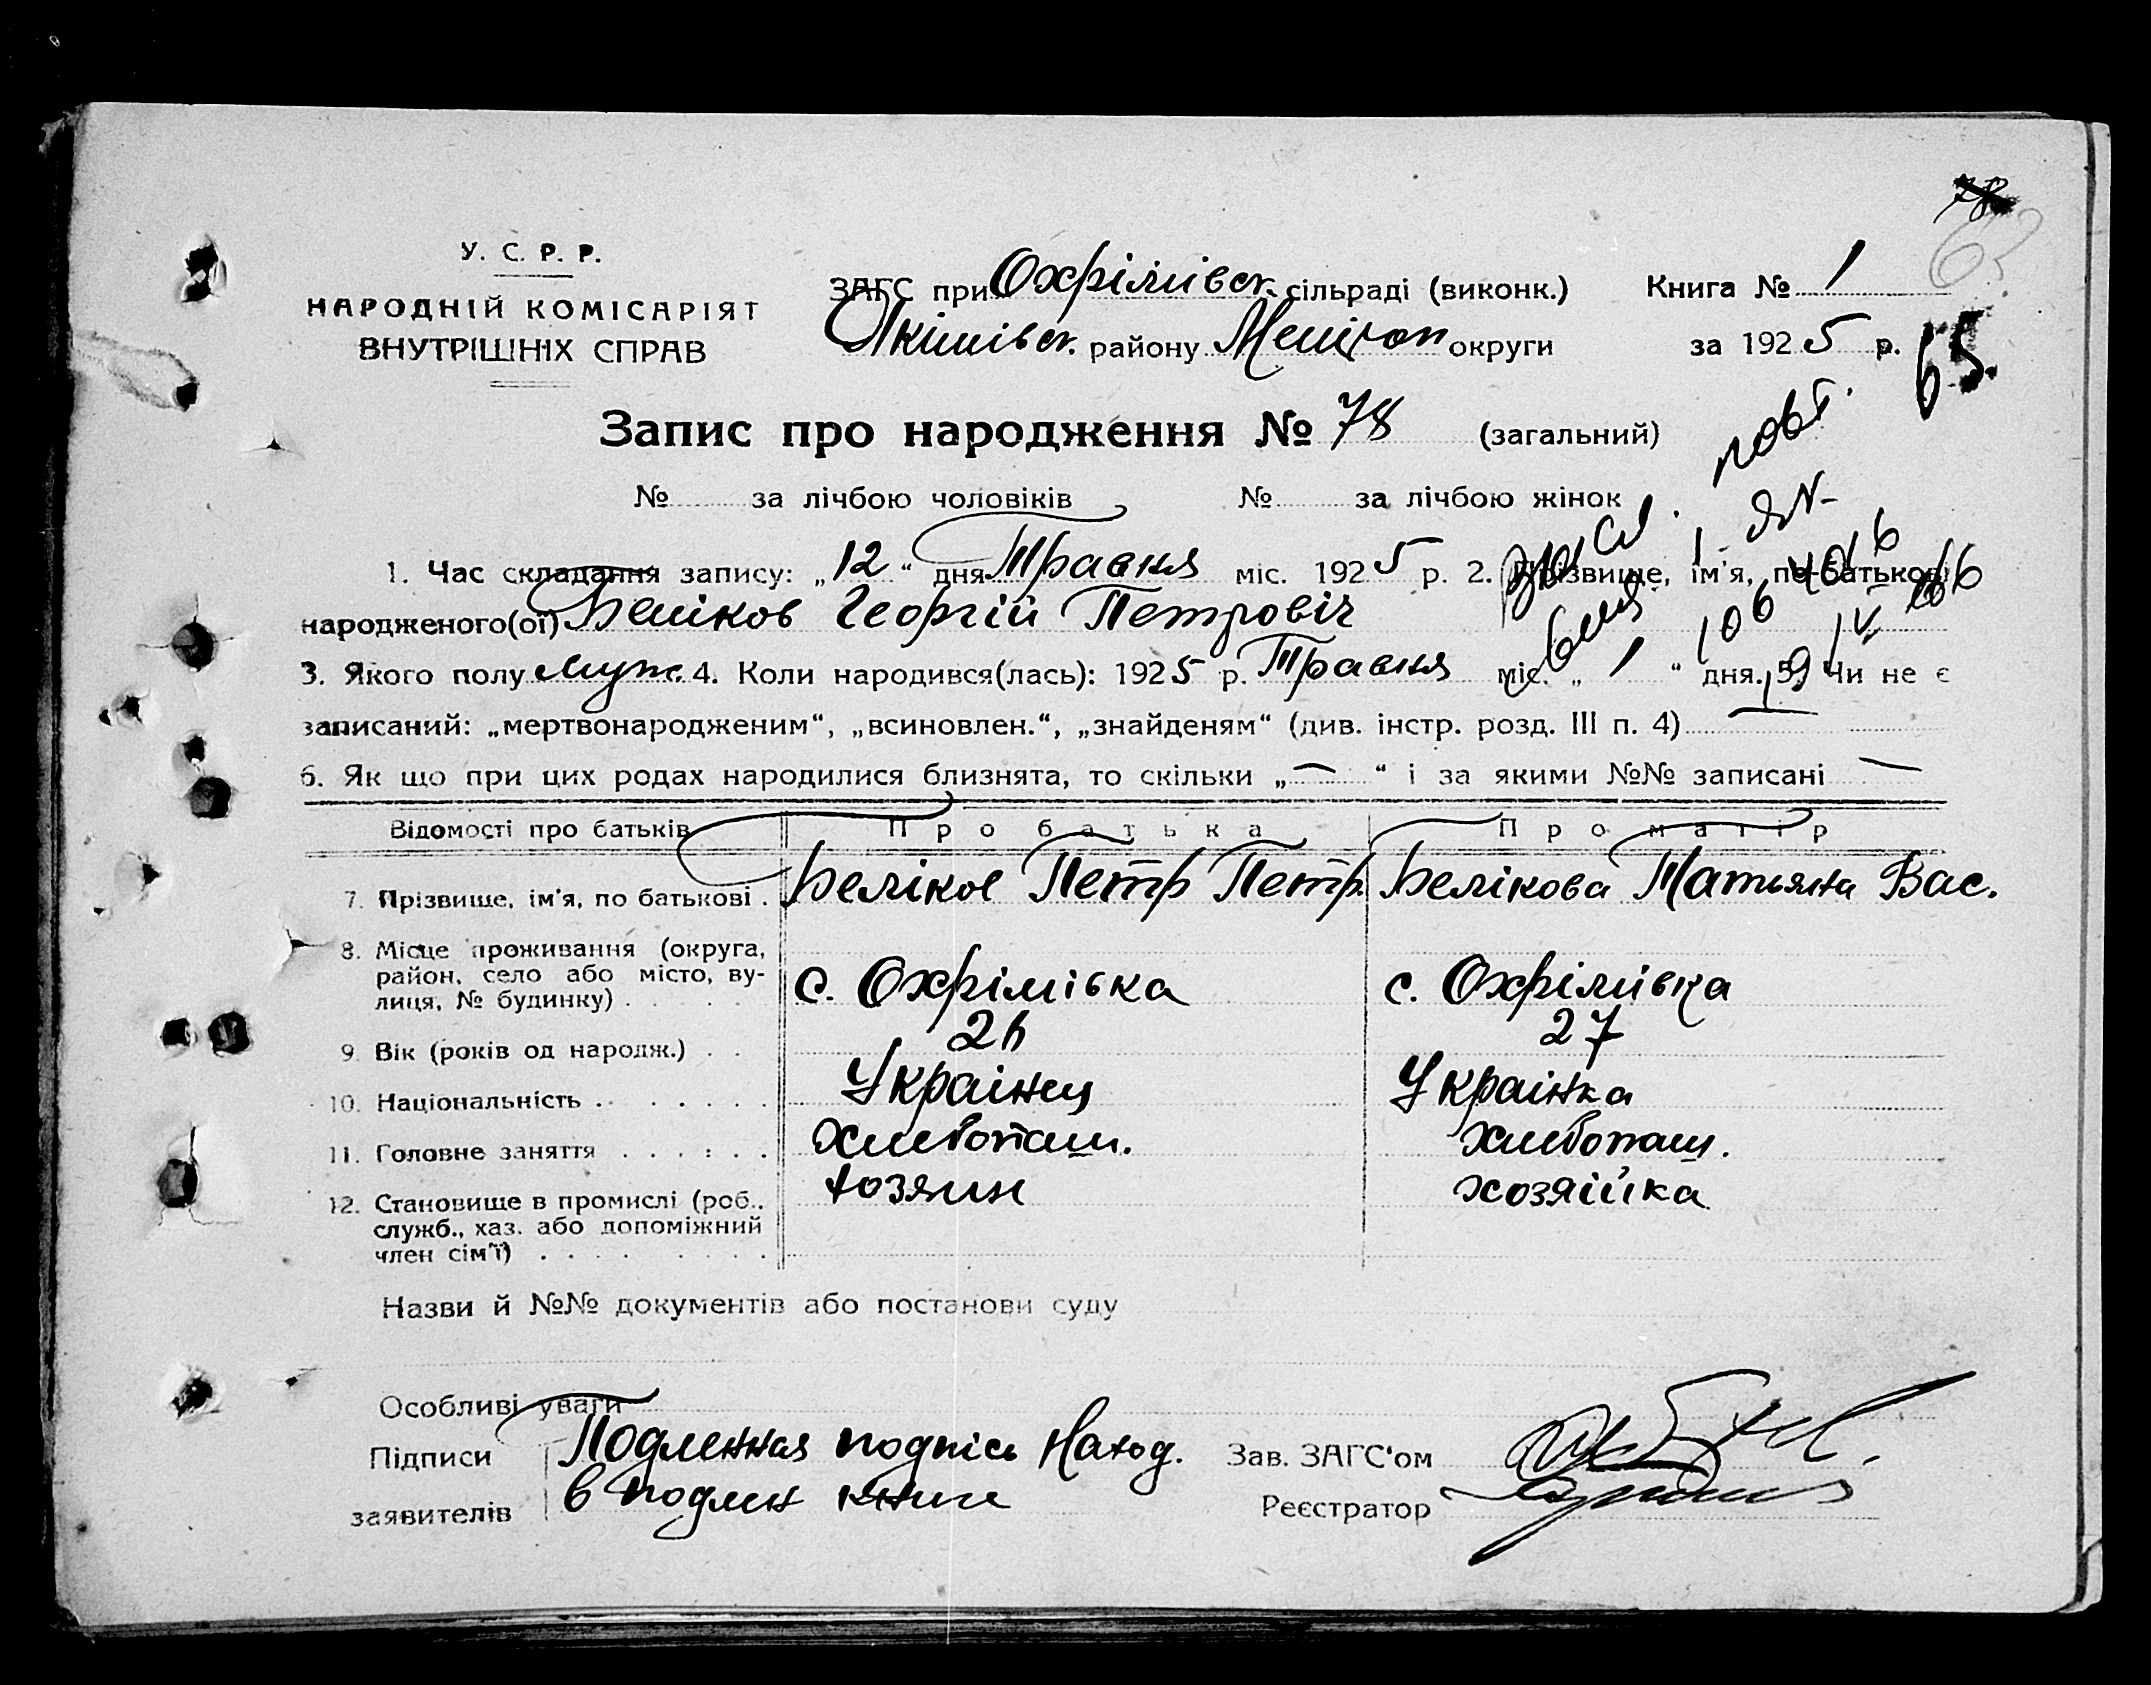 У. С. Р. Р.
НАРОДНІЙ КОМІСАРІЯТ
ВНУТРІШНІХ СПРАВ
ЗАГС при Охрімівск. сільраді (виконк.)
Якімівск. району Меліtоп округи
Книга № 1
за 1925 р.
63
65.
Запис про народження № 78 (загальний)
№ за лічбою чоловіків № за лічбою жінок
повт.
1. Час складання запису: „12“ дня Травня міс. 1925 р. 2. Прізвище, ім'я, по-батькові
народженого(ої) Беліков Георгій Петровіч
3. Якого полу муж. 4. Коли народився(лась): 1925 р. Травня міс. „1“ дня. 5. Чи не є
записаний: „мертвонародженим“, „всиновлен.“, „знайденям“ (див. інстр. розд. III п. 4) —
6. Як що при цих родах народилися близнята, то скільки „—“ і за якими №№ записані —
Відомості про батьків Про батька Про матір
7. Прізвише, ім'я, по батькові . Беліков Петр Петр. Белікова Татьяна Вас.
8. Місце проживання (округа,
район, село або місто, ву-
лиця, № будинку) . с. Охрімівка с. Охрімівка
9. Вік (років од народж.) . . 26 27
10. Національність . Украінец Украінка
11. Головне заняття . хлебопаш. хлебопаш.
12. Становище в промислі (роб.. хозяин хозяйка
служб., хаз. або допоміжний
член сім'ї) .
Назви й №№ документів або постанови суду
Особливі уваги
Підписи Подленная подпісь наход. Зав. ЗАГС'ом
заявителів в подлен книге Реєстратор